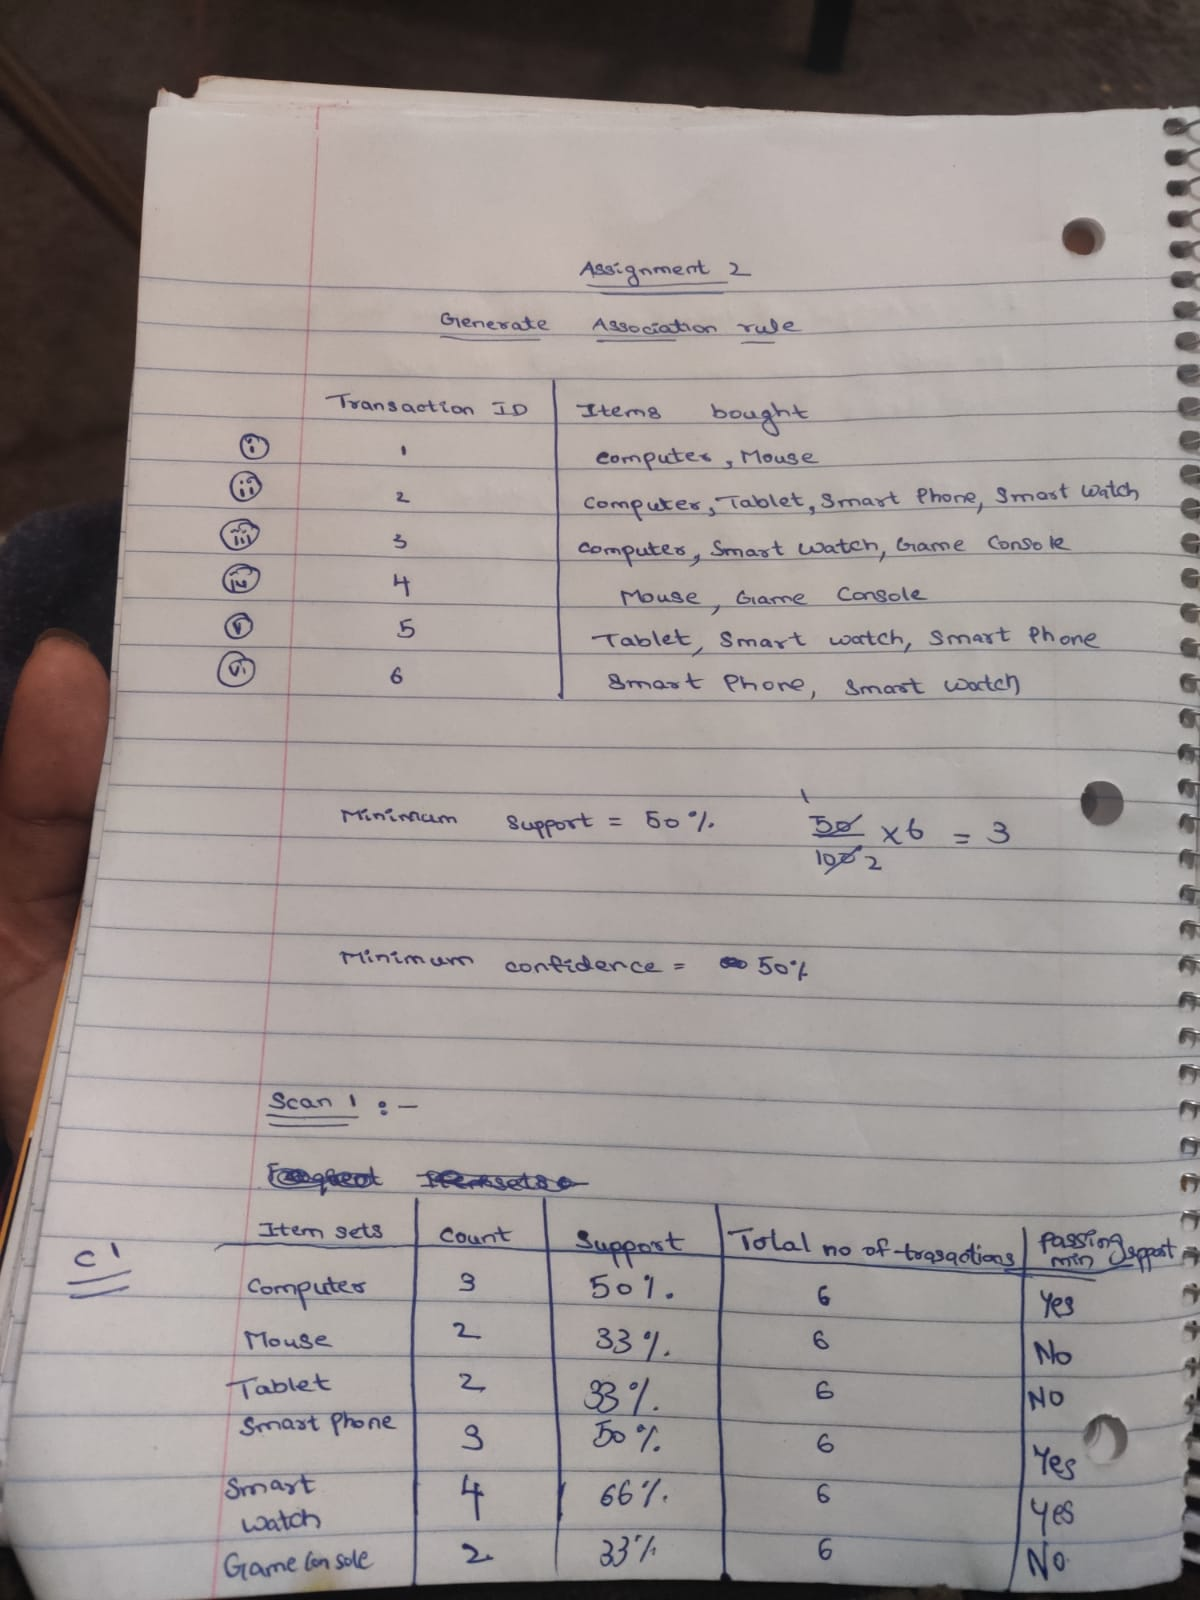 Assignment 2
Generate Association rule
Transaction ID Items bought
i 1 Computer, Mouse
ii 2 Computer, Tablet, Smart Phone, Smart Watch
iii 3 Computer, Smart Watch, Game Console
iv 4 Mouse, Game Console
v 5 Tablet, Smart watch, Smart Phone
vi 6 Smart Phone, Smart watch
Minimum Support = 50% 50/100 x 6 = 3
1 2
Minimum confidence = 50%
Scan 1 :-
Item sets Count Support Total no of trasactions Passing min support
C1
Computer 3 50% 6 Yes
Mouse 2 33% 6 No
Tablet 2 33% 6 No
Smart Phone 3 50% 6 Yes
Smart watch 4 66% 6 Yes
Game Console 2 33% 6 No